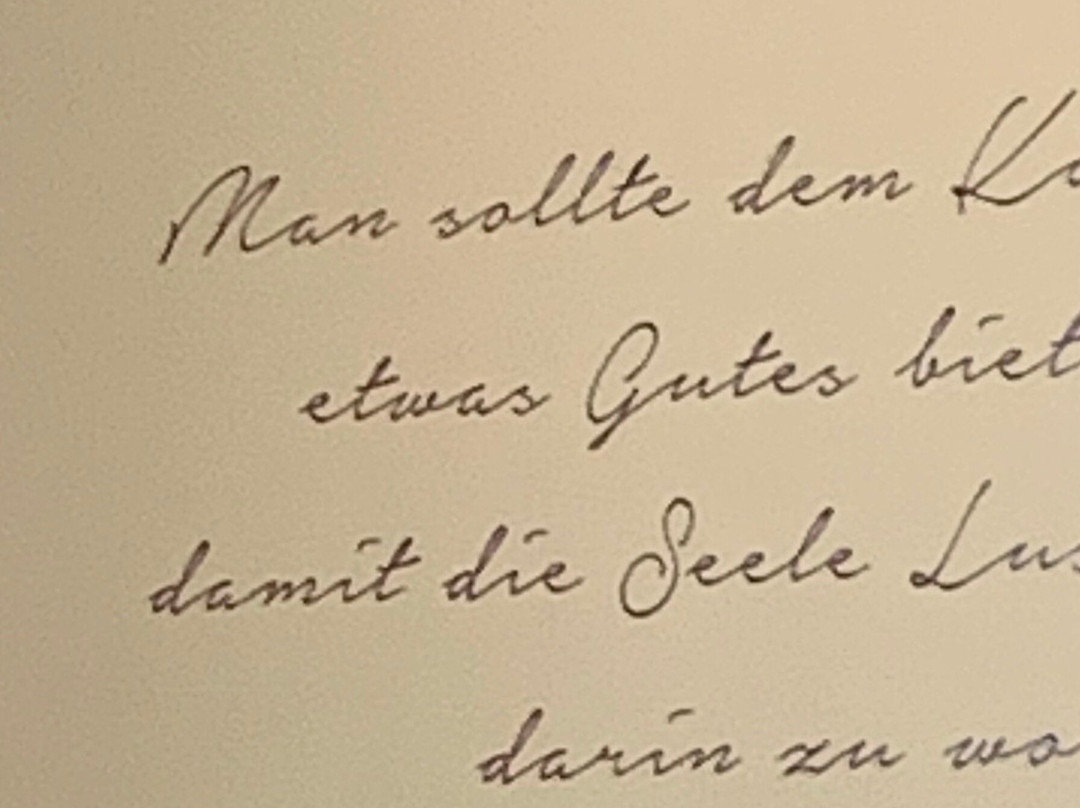 Man sollte dem
etwas Gutes
damit die Seele
darin zu